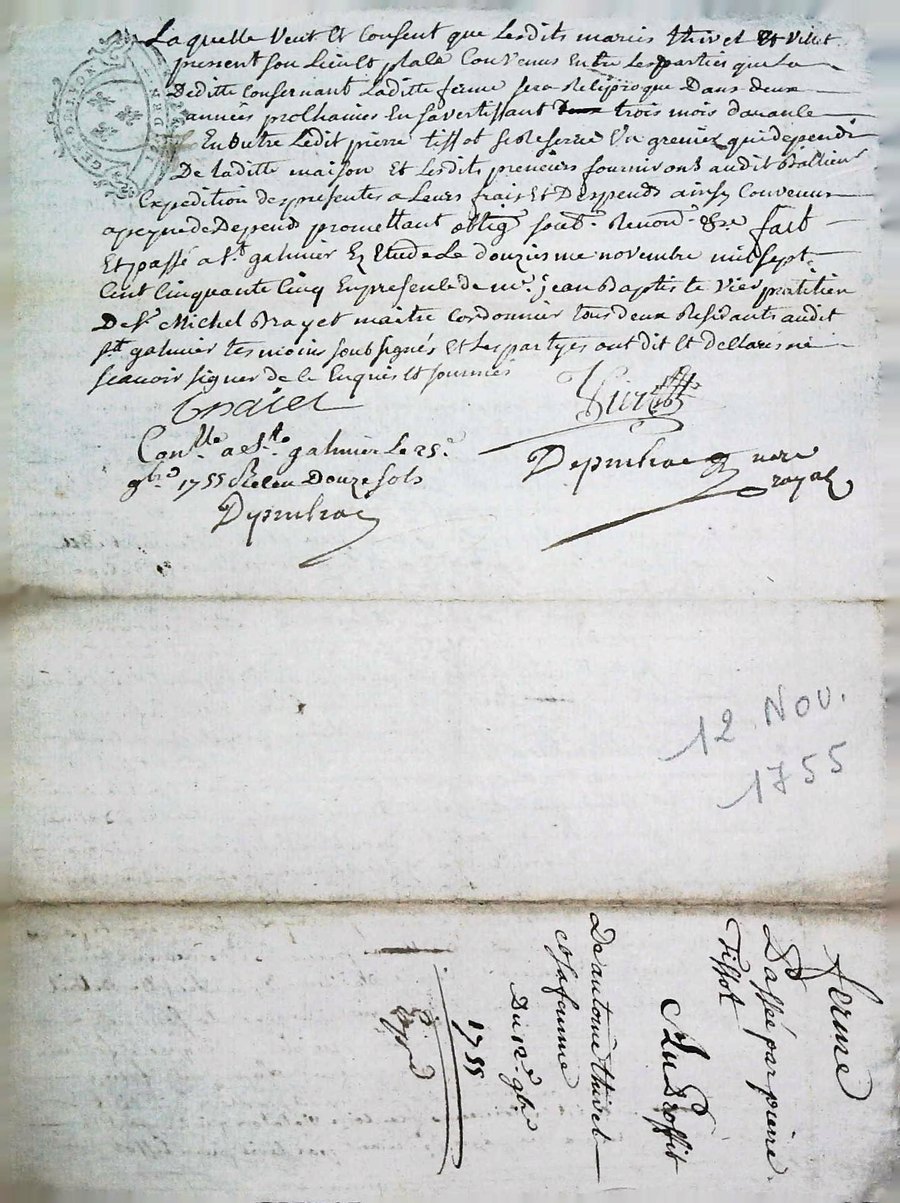 Laquelle veut et consent que lesdits mariés thivel et villet
prennent son lieu et place Convenus Entre Lesparties que La
Deditte Consernant Laditte ferme sera Reciproque Dans deux
années prochaines En savertissant trois mois davance
En outre Ledit pierre tissot se Reserve Un grenier qui depend
De laditte maison Et lesdits preneurs fourniront audit Bailleur
Expedition des presentes a Leurs frais Et Despends ainsy Convenus
a peyne de Depend promettant oblig. soub. Renon. &re fait
Et passé a St galmier Ez Etude Le douziesme novembre mil sept
Cent Cinquante Cinq En presence de mr. jean Baptiste Vier pratitien
De Sr. Michel Brayet maitre Cordonnier tous deux Residants audit
St galmier temoins soubsignés Et Les partyes ont dit Et declaré ne
scavoir signer de ce Enquis Et sommés
Braiet
Vier
Conlle a St galmier Le 25e
9bre 1755 Receu Douze sols
Depinhac nore
royal
Depinhac
12 Nov.
1755
ferme
Passé par pierre
Tissot
Au Proffit
De antoine thivel
et sa femme
Du 12e 9bre
1755